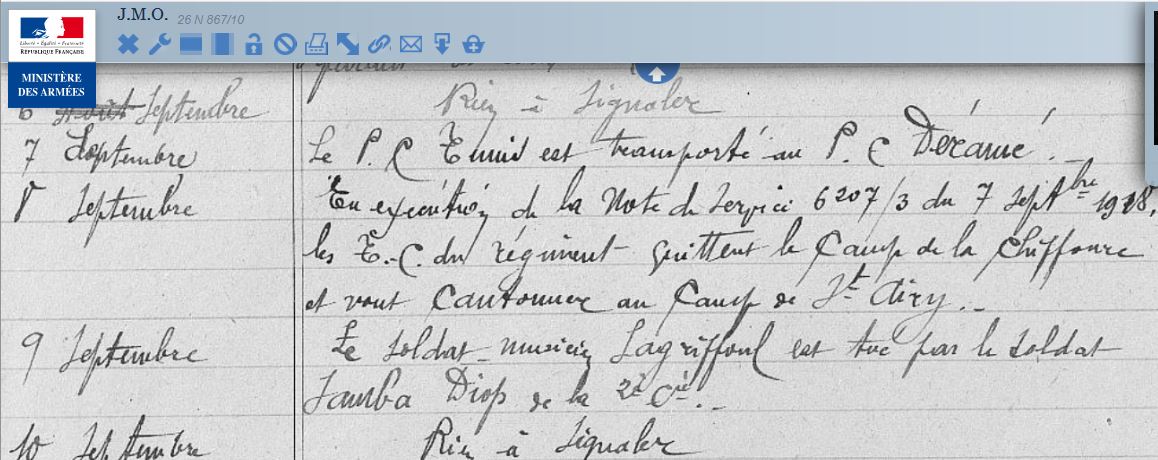 J.M.O. 26 N 867/10
Liberté • Égalité • Fraternité
RÉPUBLIQUE FRANÇAISE
MINISTÈRE
DES ARMÉES
6 Août Septembre Rien à Signaler
7 Septembre Le P. C Tunis est transporté au P. C Déramé.
8 Septembre En exécution de la Note de Service 6207/3 du 7 Septbre 1918,
les T.-C. du régiment quittent le Camp de la Chiffoure
et vont Cantonner au Camp de St Airy.
9 Septembre Le soldat-musicien Lagriffoul est tué par le soldat
Samba Diop de la 2è Cie.
10 Septembre Rien à Signaler